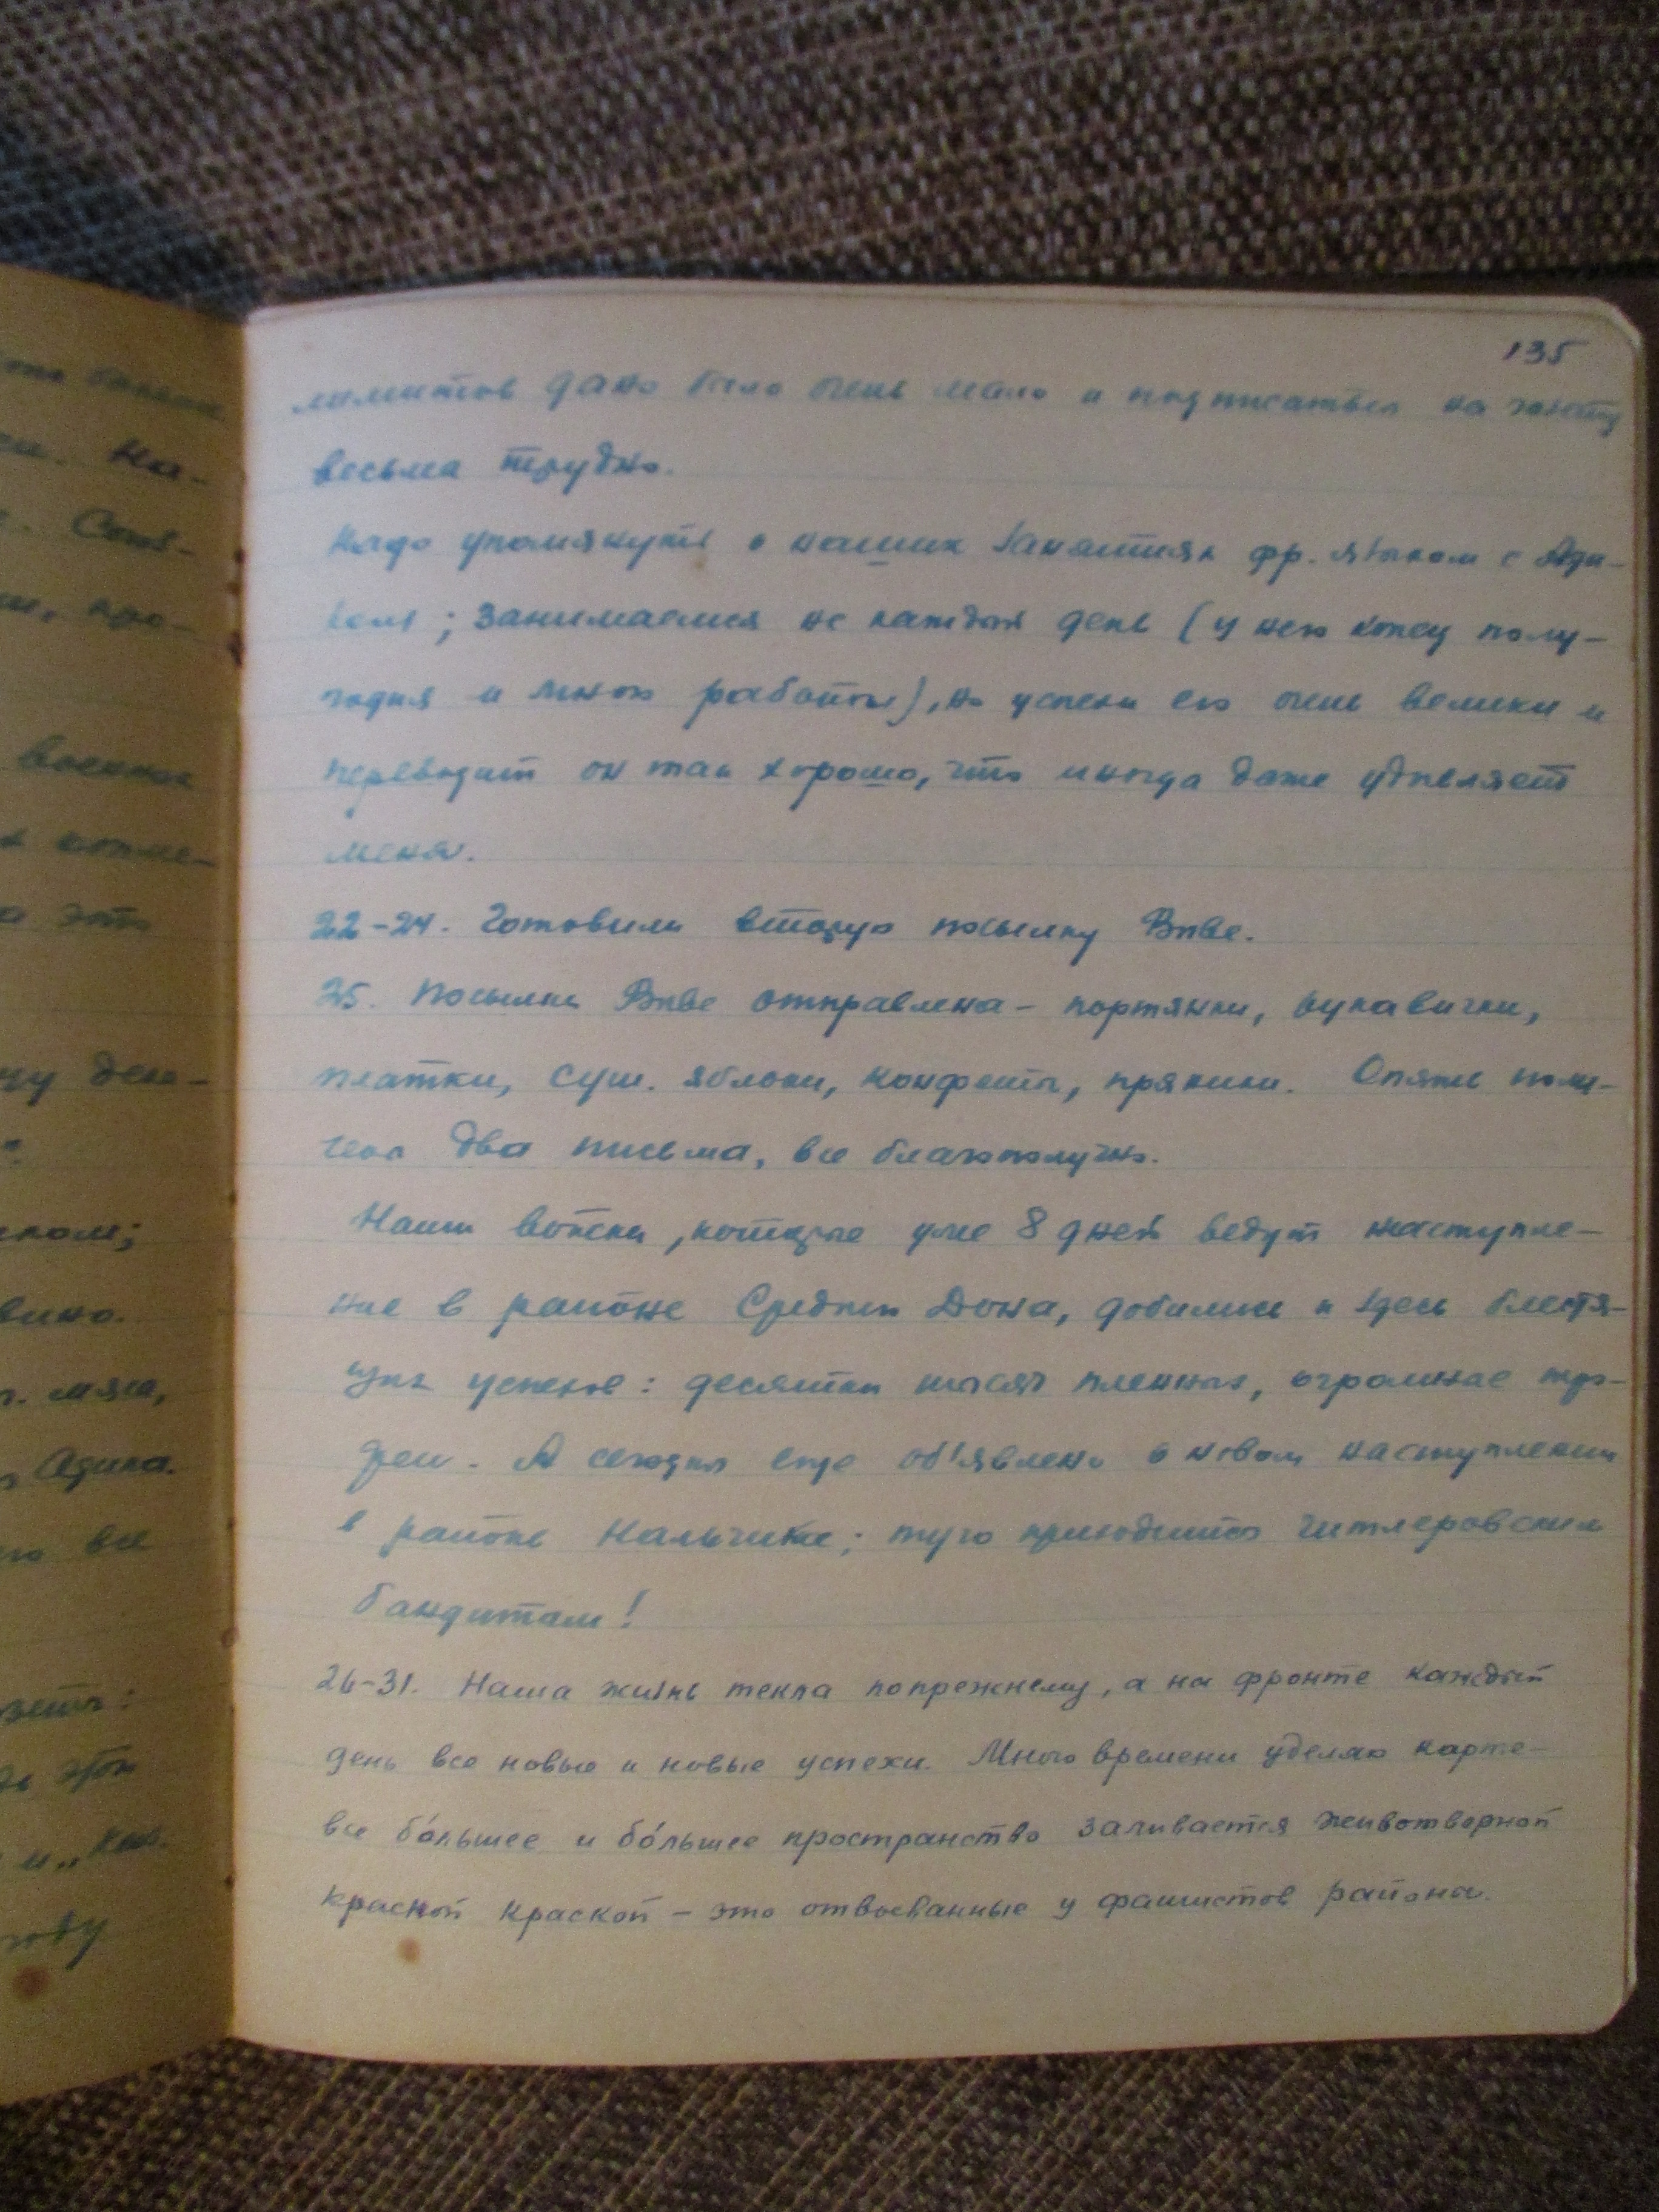 135
лимитов дано было очень мало и подписаться на газету
весьма трудно.
Надо упомянуть о наших занятиях фр. языком с Ади-
ком; занимаемся не каждый день (у него конец полу-
годия и много работы), но успехи его очень велики и
переводит он так хорошо, что иногда даже удивляет
меня.
22-24. Готовили вторую посылку Вове.
25. Посылка Вове отправлена - портянки, рукавички,
платки, суш. яблоки, конфеты, пряники. Опять полу-
чено два письма, все благополучно.
Наши войска, которые уже 8 дней ведут наступле-
ние в районе Средн. Дона, добились и здесь блестя-
щих успехов: десятки тысяч пленных, огромные тро-
феи. А сегодня еще об'явлено о новом наступлении
в районе Нальчика; туго приходится гитлеровским
бандитам!
26-31. Наша жизнь текла попрежнему, а на фронте каждый
день все новые и новые успехи. Много времени уделяю карте-
все бо́льшее и бо́льшее пространство заливается животворной
красной краской - это отвоеванные у фашистов районы.
На-
военное
это
вино.
Адика.
все